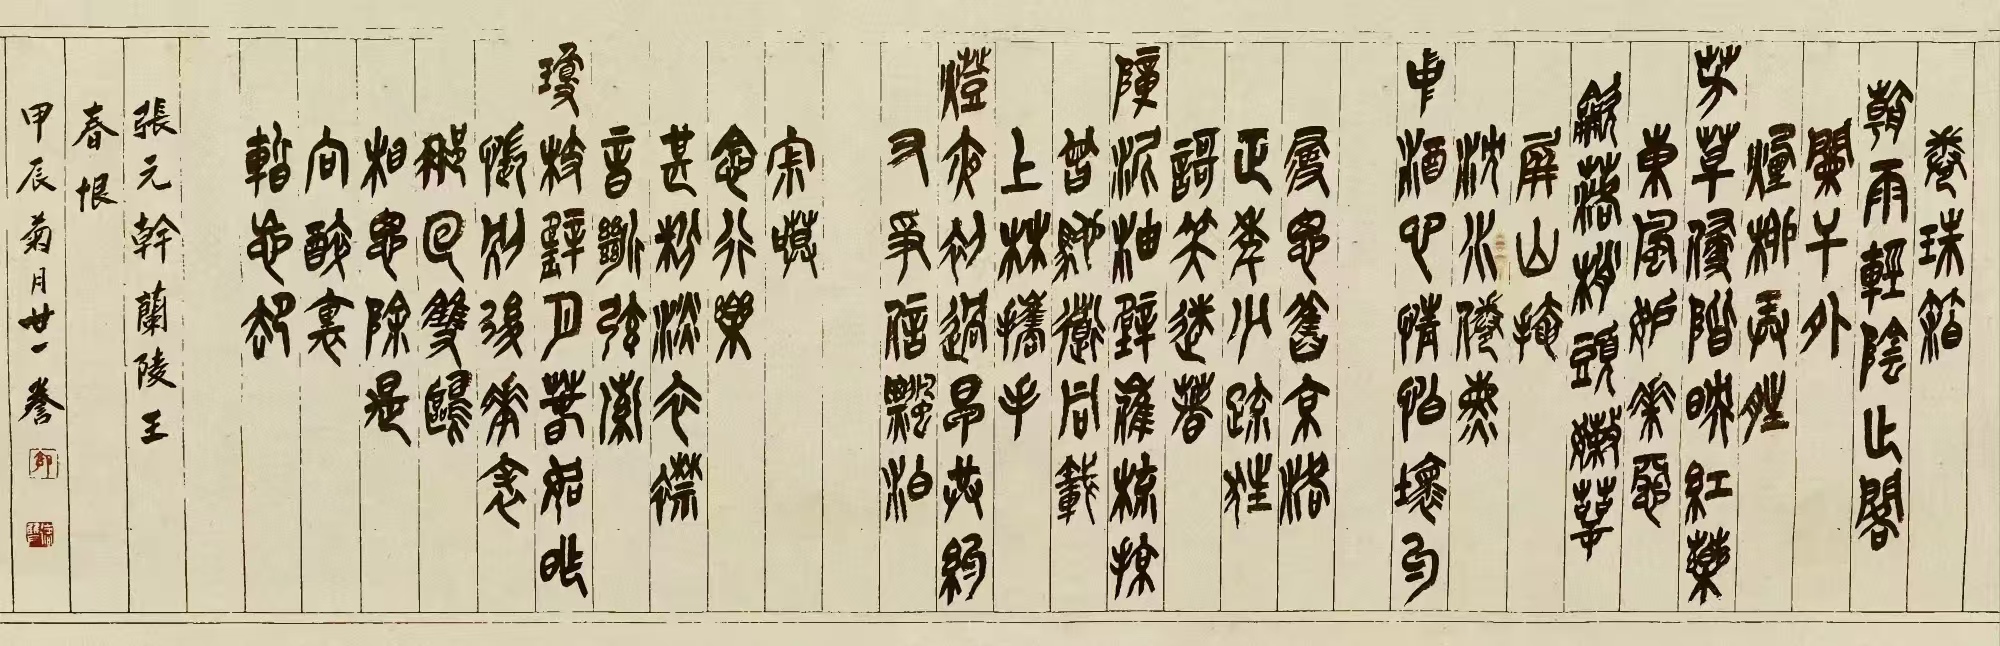 卷珠箔
朝雨輕陰乍閣
闌干外
煙柳弄晴
芳草侵階映紅藥
東風妒花惡
吹落梢頭嫩萼
屏山掩
沈水倦熏
中酒心情怕杯勺
尋思舊京洛
正年少疏狂
歌笑迷著
障泥油壁催梳掠
曾馳道同載
上林攜手
燈夜初過早共約
又爭信飄泊
寂寞
念行樂
甚粉淡衣襟
音斷弦索
瓊枝璧月春如昨
悵別後華表
那回雙鶴
相思除是
向醉裏
暫忘卻
張元幹蘭陵王
春恨
甲辰菊月廿一誊